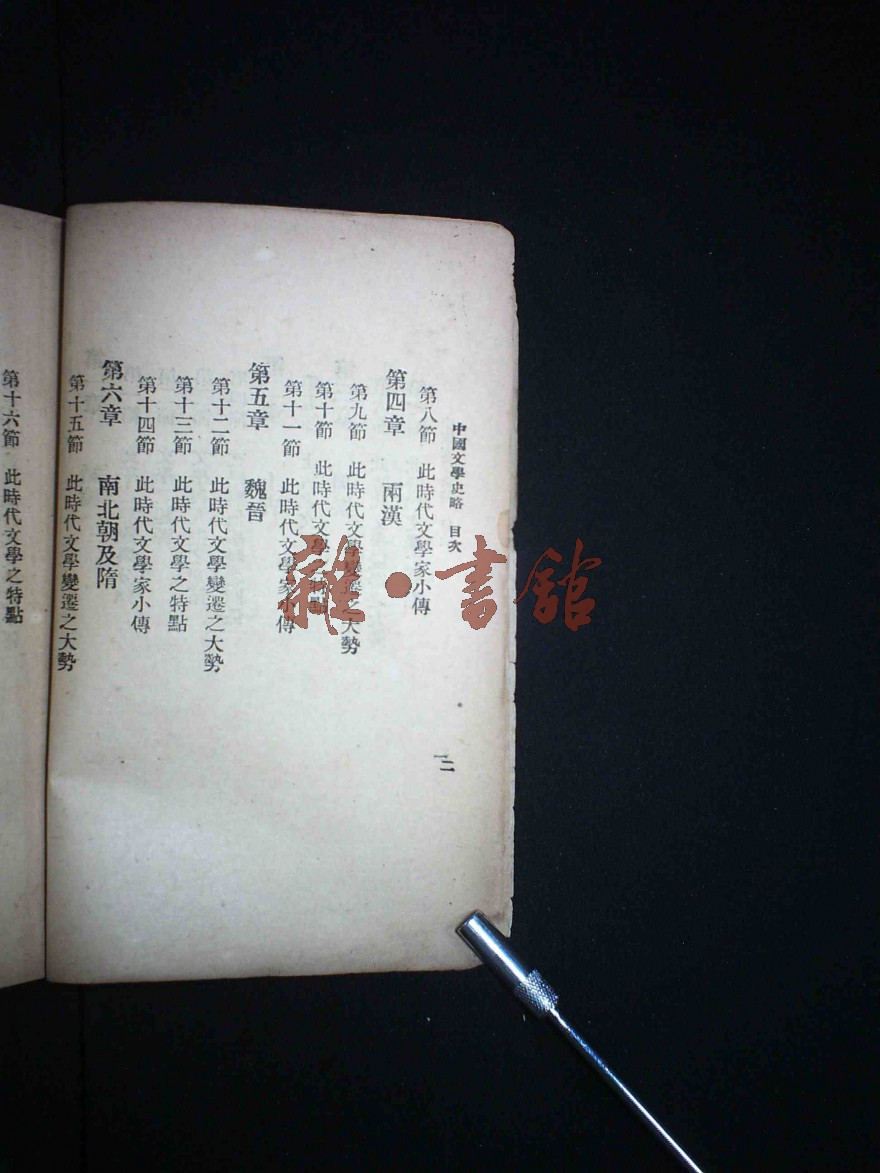 中國文學史略　目次
第八節　此時代文學家小傳
第四章　兩漢
第九節　此時代文學變遷之大勢
第十節　此時代文學之特點
第十一節　此時代文學家小傳
第五章　魏晉
第十二節　此時代文學變遷之大勢
第十三節　此時代文學之特點
第十四節　此時代文學家小傳
第六章　南北朝及隋
第十五節　此時代文學變遷之大勢
二
第十六節　此時代文學之特點
雜·書館